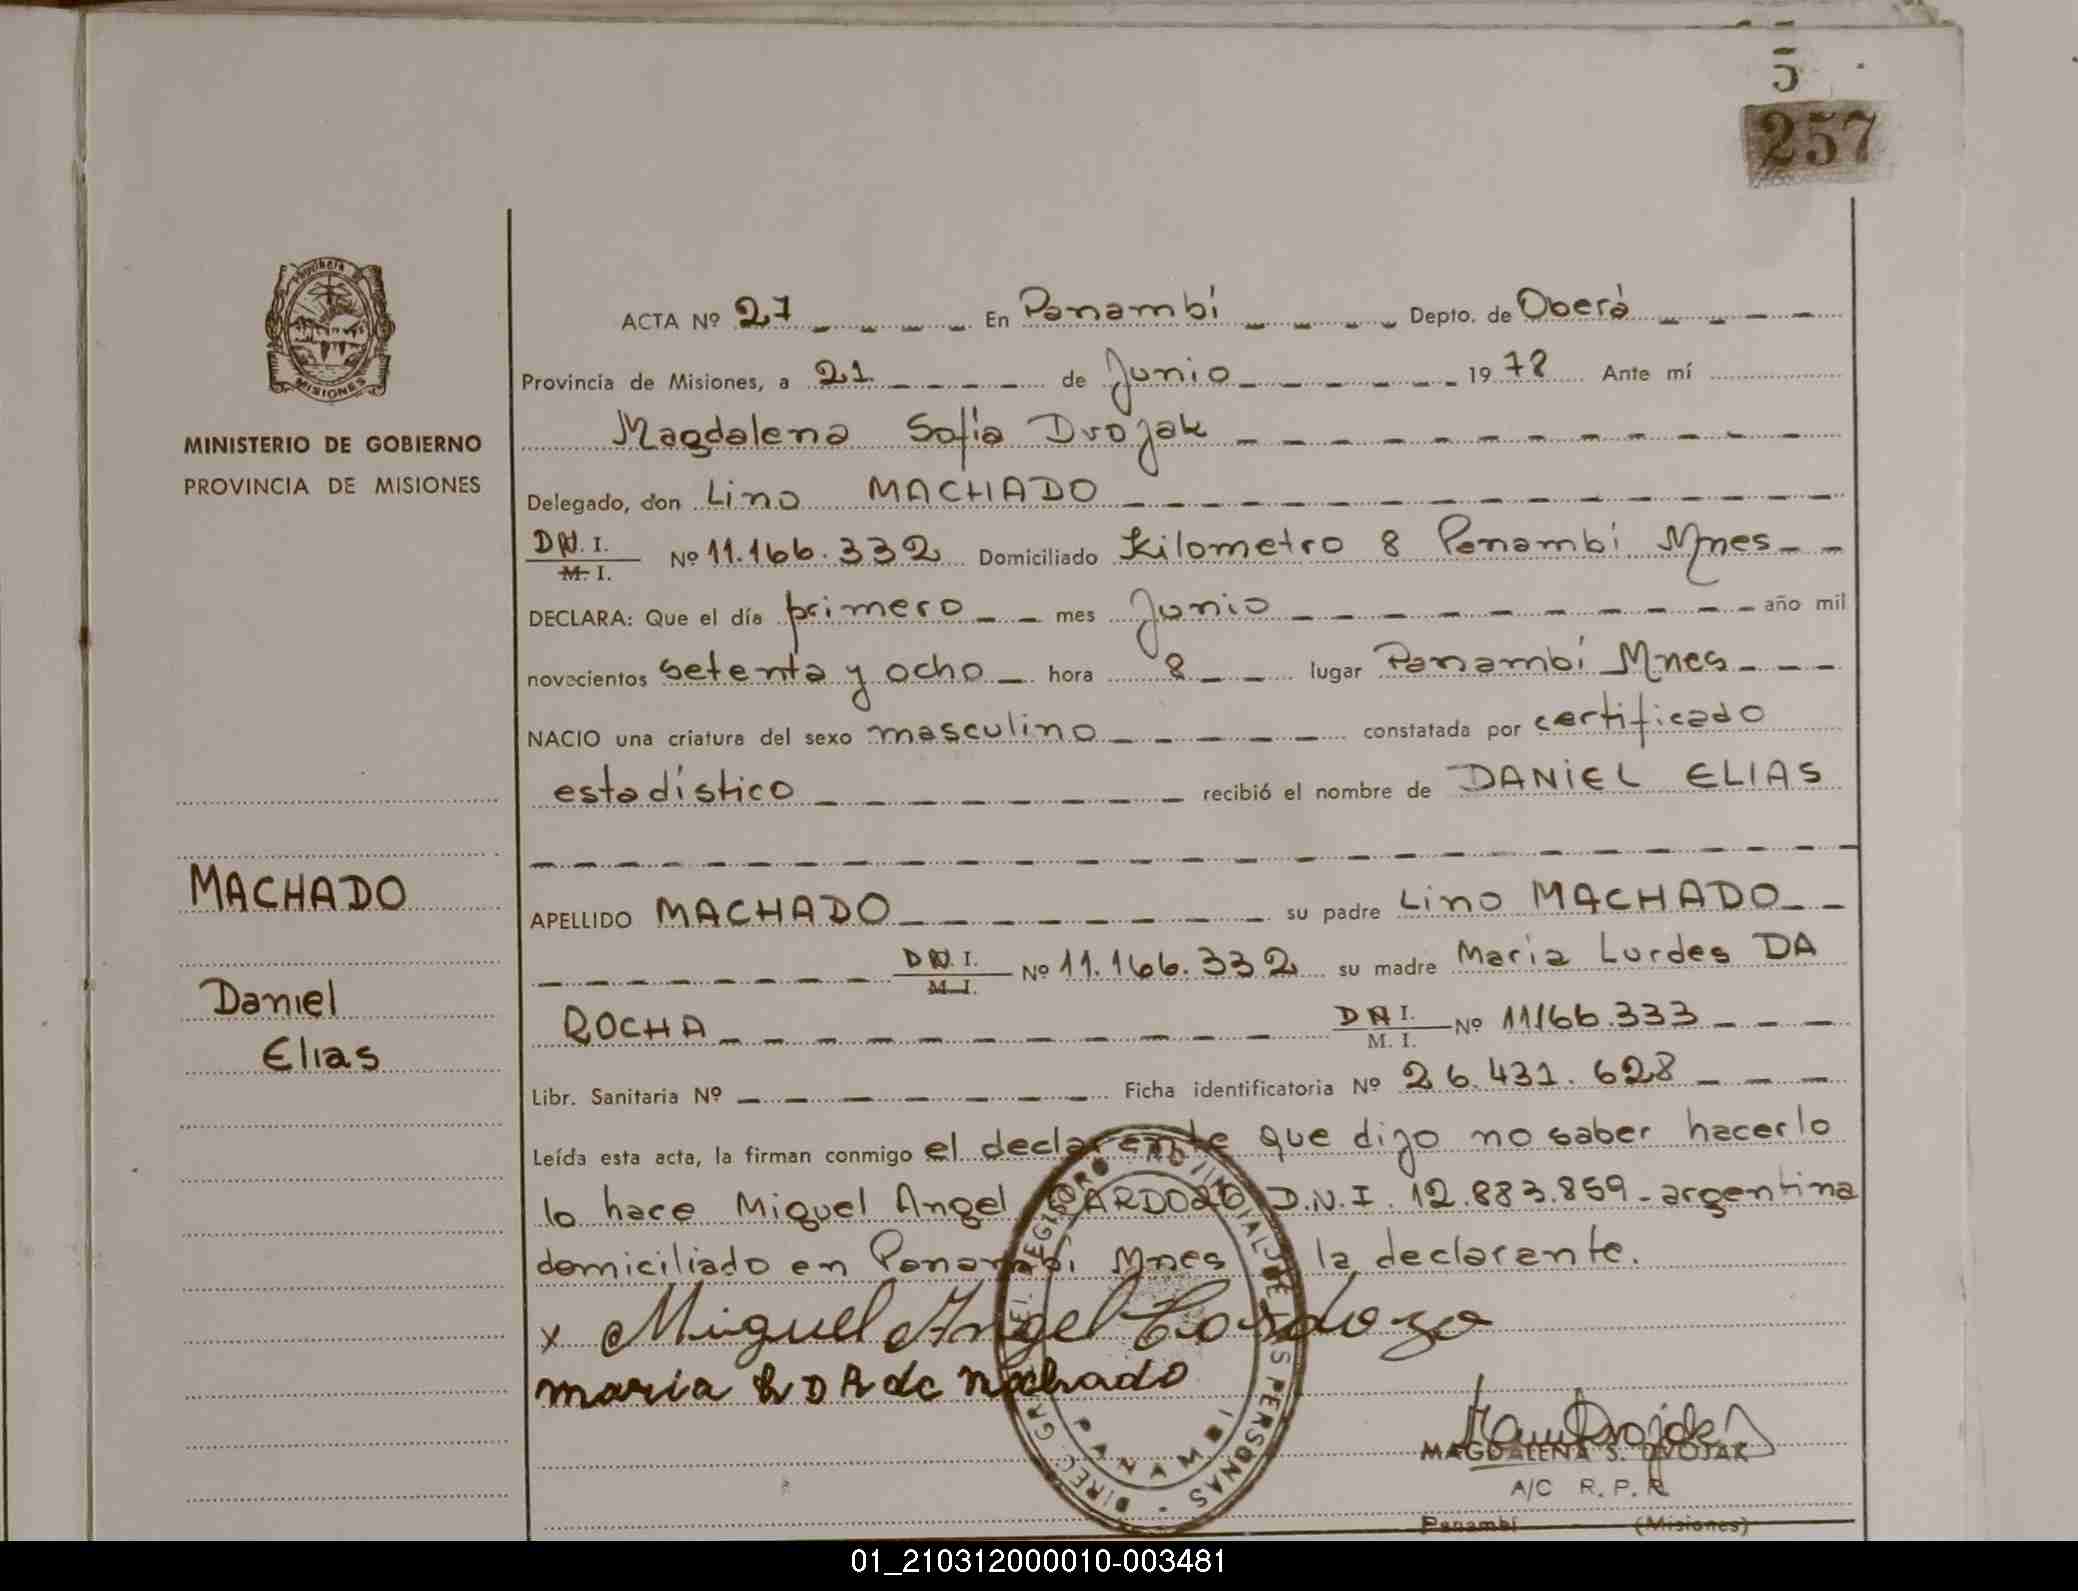 5
257
MISIONES
MINISTERIO DE GOBIERNO
PROVINCIA DE MISIONES
MACHADO
Daniel
Elias
ACTA Nº 27 En Panambí Depto. de Oberá
Provincia de Misiones, a 21 de Junio 1978 Ante mí
Magdalena Sofia Dvojak
Delegado, don Lino MACHADO
D.N.I. M. I. Nº 11.166.332 Domiciliado Kilometro 8 Panambí Mnes
DECLARA: Que el día primero mes Junio año mil
novecientos setenta y ocho hora 8 lugar Panambí Mnes
NACIO una criatura del sexo masculino constatada por certificado
estadístico recibió el nombre de DANIEL ELIAS
APELLIDO MACHADO su padre Lino MACHADO
D.N.I. M. I. Nº 11.166.332 su madre Maria Lurdes DA
ROCHA D N I. M. I. Nº 11166.333
Libr. Sanitaria Nº Ficha identificatoria Nº 26.431.628
Leída esta acta, la firman conmigo el declarente que dijo no saber hacerlo
lo hace Miguel Angel CARDOZO D.N.I. 12.883.859-argentina
domiciliado en Panambí Mnes la declarante.
x Miguel Angel Cardozo
maria L D R de Machado
DIREC. GRAL. DEL REGISTRO PROVINCIAL DE LAS PERSONAS
PANAMBI
MAGDALENA S. DVOJAK
A/C R. P. P.
Panambí (Misiones)
01_210312000010-003481